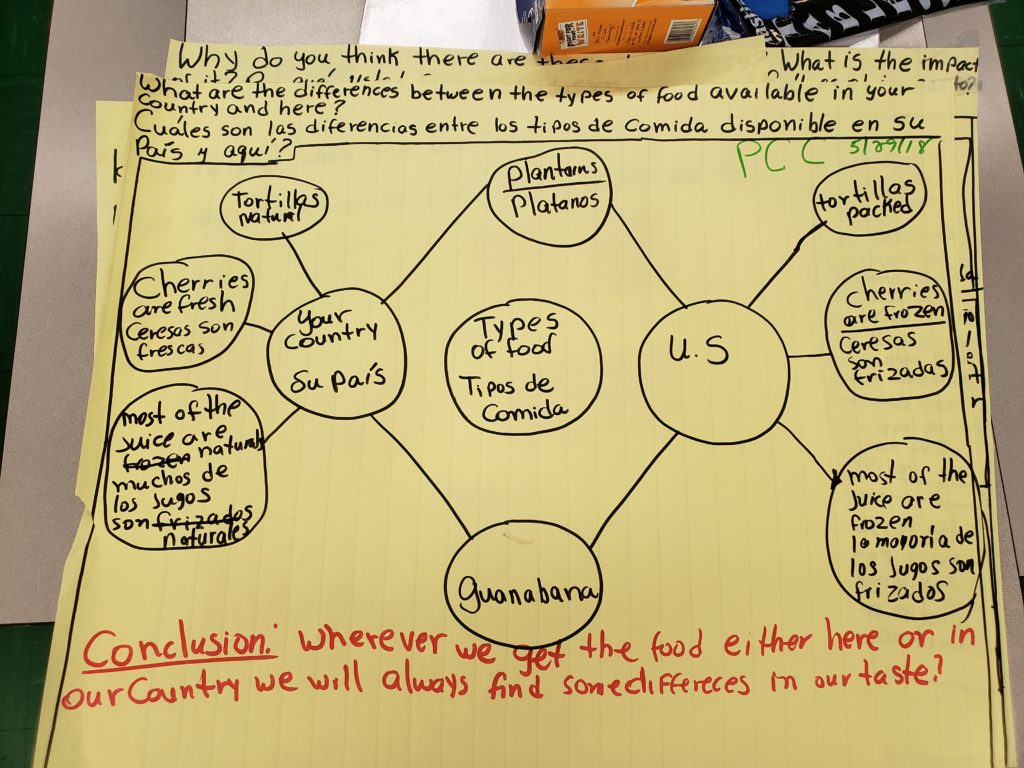 Why do you think there are these
What is the impact
to?
What are the differences between the types of food available in your
Country and here?
Cuáles son las diferencias entre los tipos de Comida disponible en su
País y aquí?
PCC 5/29/18
Tortillas
natural
Plantains
Platanos
tortillas
packed
Cherries
are fresh
Ceresas son
frescas
Your
Country
Su país
Types
of food
Tipos de
Comida
U.S
Cherries
are frozen
Ceresas
son
frizadas
most of the
Juice are
frozen naturals
muchos de
los Jugos
son frizados
naturales
Guanabana
most of the
Juice are
frozen
la mayoría de
los Jugos son
frizados
Conclusion: Wherever we get the food either here or in
our Country we will always find some differeces in our taste?